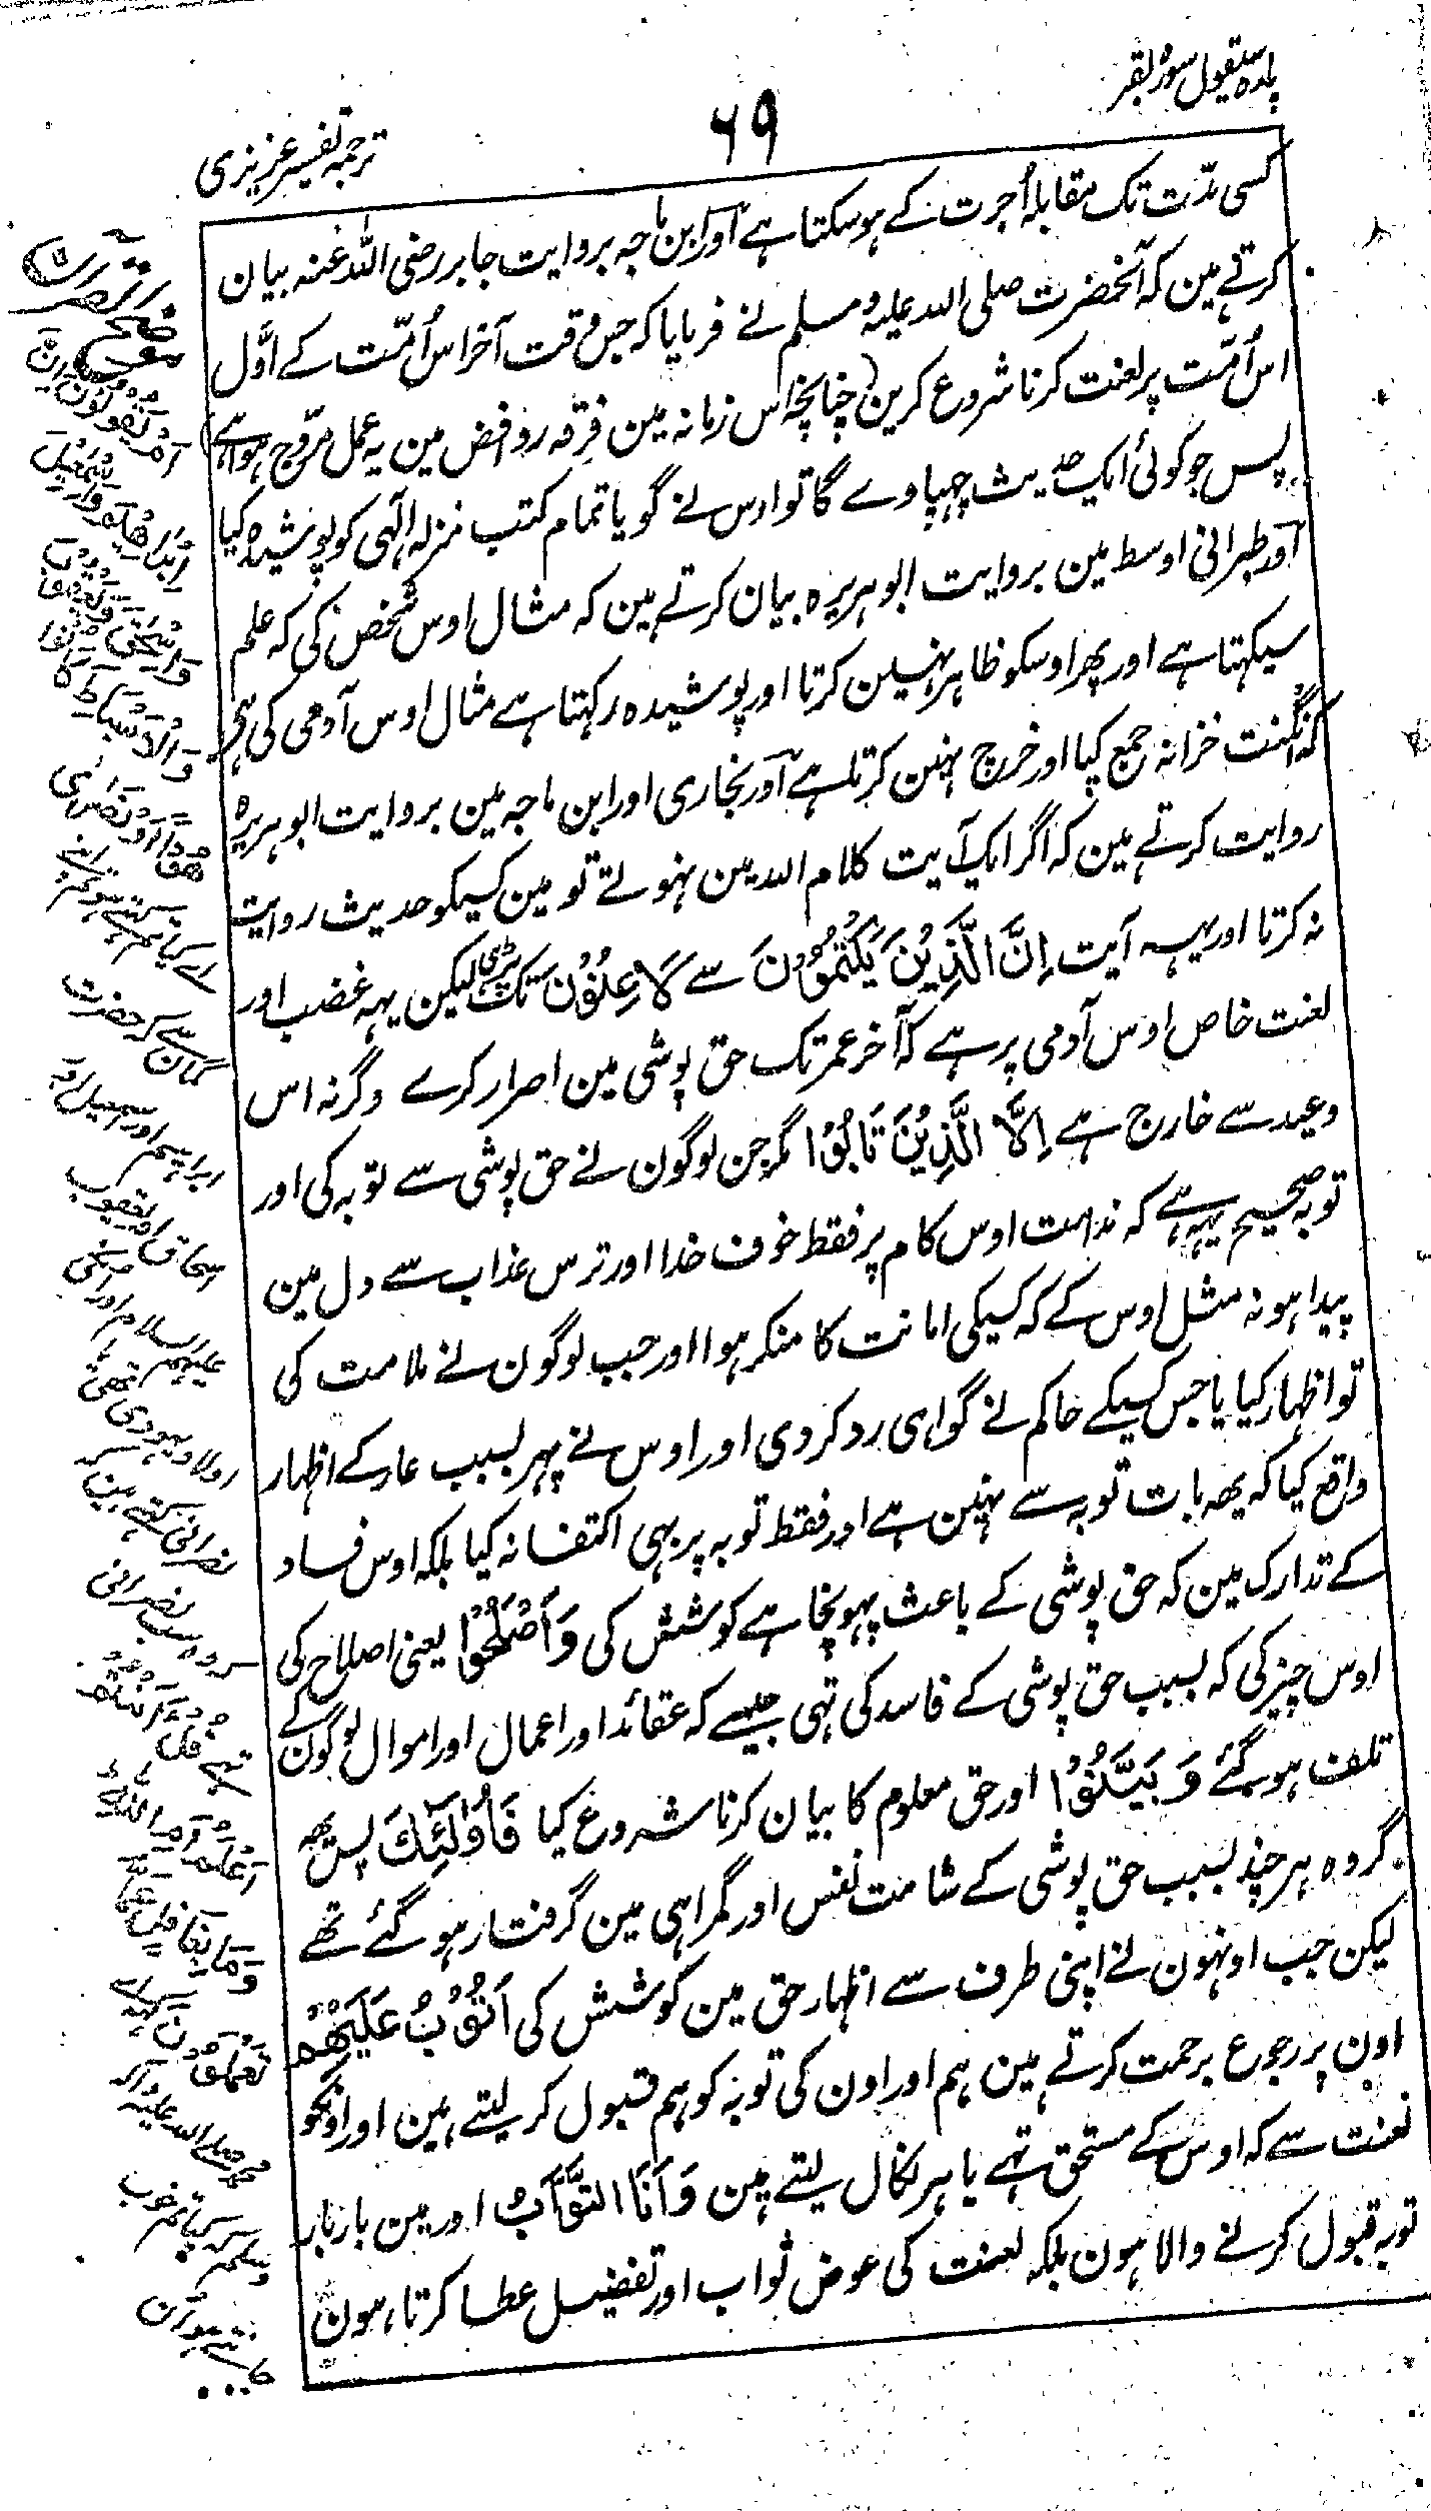 پارہ سیقول سورہ بقر
۶۹
ترجمہ تفسیر عزیزی
کسی مدّت تک مقابلہ اُجرت کے ہو سکتا ہے اور ابن ماجہ بروایت جابر رضی اللہ عنہ بیان
کرتے مین کہ آنحضرت صلی اللہ علیہ وسلم نے فرمایا کہ جس وقت آخر اس اُمّت کے اوّل
اس اُمّت پر لعنت کرنا شروع کرین (چنانچہ اس زمانہ مین فرقہ روافض مین یہ عمل مروّج ہوا ہے)
پس جو کوئی ایک حدیث چہپاوے گا تو اوس نے گویا تمام کتب منزلہ الٰہی کو پوشیدہ کیا
اور طبرانی اوسط مین بروایت ابوہریرہ بیان کرتے ہین کہ مثال اوس شخص کی کہ علم
سیکہتا ہے اور پھر اوسکو ظاہر نہین کرتا اور پوشیدہ رکہتا ہے مثال اوس آدمی کی ہے
کہ گنت خزانہ جمع کیا اور خرچ نہین کرتا ہے اور بخاری اور ابن ماجہ مین بروایت ابوہریرہ
روایت کرتے مین کہ اگر ایک آیت کلام اللہ مین نہوتے تو مین کسیکو حدیث روایت
نہ کرتا اور یہہ آیت اِنَّ الَّذِیْنَ یَکْتُمُوْنَ سے لَاعِنُوْنَ تک پڑہی لیکن یہہ غضب اور
لعنت خاص اوس آدمی پر ہے کہ آخر عمر تک حق پوشی مین اصرار کرے وگرنہ اس
وعید سے خارج ہے اِلَّا الَّذِیْنَ تَابُوْا مگر جن لوگون نے حق پوشی سے توبہ کی اور
توبہ صحیح یہہ ہے کہ ندامت اوس کام پر فقط خوف خدا اور ترس عذاب سے دل مین
پیدا ہو نہ مثل اوس کے کہ کسیکی امانت کا منکر ہوا اور جب لوگون نے ملامت کی
تو اظہار کیا یا جس کسیکے حاکم نے گواہی رد کر دی اور اوس نے پہر بسبب عار کے اظہار
واقع کیا کہ یھہ بات توبہ سے نہین ہے اور فقط توبہ پر بہی اکتفا نہ کیا بلکہ اوس فساد
کے تدارک مین کہ حق پوشی کے باعث پہونچا ہے کوشش کی وَاَصْلَحُوْا یعنی اصلاح کی
اوس چیز کی کہ بسبب حق پوشی کے فاسد کی تہی جیسے کہ عقائد اور اعمال اور اموال لوگون کے
تلف ہو گئے وَبَیَّنُوْا اور حق معلوم کا بیان کرنا شروع کیا فَاُولٰٓئِکَ پس یھہ
گروہ ہر چند بسبب حق پوشی کے شامت نفس اور گمراہی مین گرفتار ہو گئے تھے
لیکن جب اونہون نے اپنی طرف سے اظہار حق مین کوشش کی اَتُوْبُ عَلَیْھِمْ
اون پر رجوع برحمت کرتے مین ہم اور اون کی توبہ کو ہم قبول کر لیتے ہین اور اونکو
لعنت سے کہ اوس کے مستحق تہے باہر نکال لیتے ہین وَاَنَا التَّوَّابُ اور مین بار بار
توبہ قبول کرنے والا ہون بلکہ لعنت کی عوض ثواب اور تفضیل عطا کرتا ہون
موضح القرآن
اَمْ تَقُوْلُوْنَ اِنَّ
اِبْرَاھِیْمَ وَاِسْمٰعِیْلَ
وَاِسْحٰقَ وَیَعْقُوْبَ
وَالْاَسْبَاطَ کَانُوْا
ھُوْدًا اَوْ نَصٰرٰی
اے کیا تم کہتے ہو
کہ حضرت
ابراہیم اور اسمٰعیل اور
اسحاق اور یعقوب
علیہم السلام اور اونکی
اولاد یہودی تھی یا
نصرانی کہتے ہین کہ
نصرانی
تہے قُلْ ءَاَنْتُمْ
اَعْلَمُ اَمِ اللّٰہُ
وَمَا اللّٰہُ بِغَافِلٍ عَمَّا
تَعْمَلُوْنَ
محمد صلی اللہ علیہ وآلہ
وسلم کہ کیا تم خوب
جانتے ہو اُن